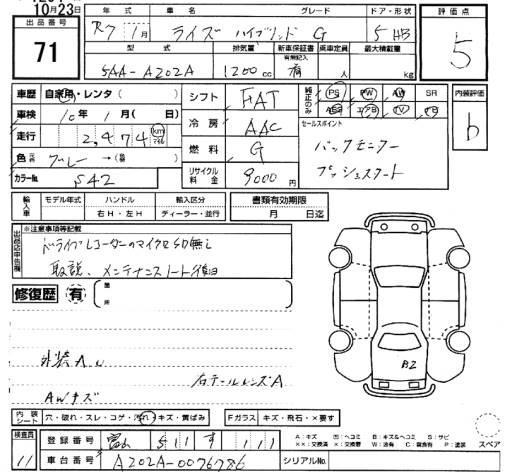 10月23日
出品番号
71
年式 車名 グレード ドア・形状
R7年1月 ライズ ハイブリッド G 5 HB
型式 排気量 新車保証書 有無記入 乗車定員 最大積載量
5AA-A202A 1200cc 有 人 kg
評価点
5
内装評価
b
車歴 自家用・レンタ( )
車検 10年1月( 日)
走行 2,474 km マイル
色 元色 グレー→(
カラーNo. S42
シフト FAT
冷房 AAC
燃料 G
リサイクル料金 9000円
純正のみ PS PW AW SR
TV
セールスポイント
バックモニター
プッシュスタート
輸入車 モデル年式 ハンドル 輸入区分
右H・左H ディーラー・並行
書類有効期限
月 日迄
出品店申告欄
※注意事項等記載
ドライブレコーダーのマイクロSD無し
取説、メンテナンスノート後日
修復歴 有 箇所
外装A U
右テールレンズA
AWキズ
B2
内装シート 穴・破れ・スレ・コゲ・汚れ・キズ・黄ばみ
Fガラス キズ・飛石・×要す
検査員
11
登録番号 富山 511 す 111
車台番号 A202A-0076786
シリアルNo.
A:キズ B:キズ&ヘコミ S:サビ
P:塗装
スペア